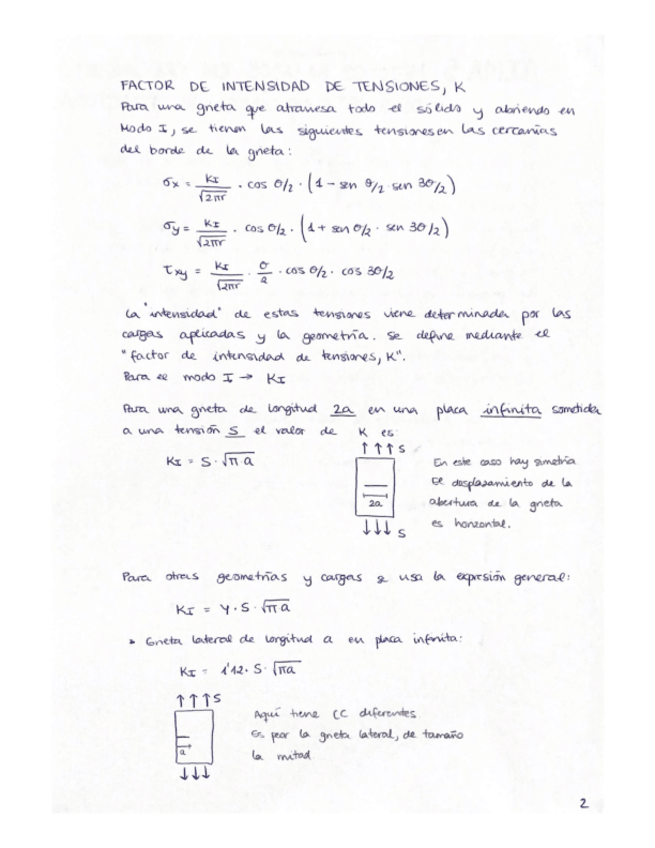 FACTOR DE INTENSIDAD DE TENSIONES, K
Para una grieta que atraviesa todo el sólido y abriendo en
Modo I, se tienen las siguientes tensiones en las cercanías
del borde de la grieta:
σx = KI/√2πr · cos θ/2 · (1 - sen θ/2 · sen 3θ/2)
σy = KI/√2πr · cos θ/2 · (1 + sen θ/2 · sen 3θ/2)
τxy = KI/√2πr · σ/2 · cos θ/2 · cos 3θ/2
La "intensidad" de estas tensiones viene determinada por las
cargas aplicadas y la geometría. Se define mediante el
"factor de intensidad de tensiones, K".
Para el modo I → KI
Para una grieta de longitud 2a en una placa infinita sometida
a una tensión S el valor de K es
KI = S · √π·a
↑↑↑ S
2a
↓↓↓ S
En este caso hay simetría
El desplazamiento de la
abertura de la grieta
es horizontal.
Para otras geometrías y cargas se usa la expresión general:
KI = Y · S · √πa
Grieta lateral de longitud a en placa infinita:
KI = 1'12 · S · √πa
↑↑↑ S
a
↓↓↓
Aquí tiene CC diferentes.
Es peor la grieta lateral, de tamaño
la mitad
2